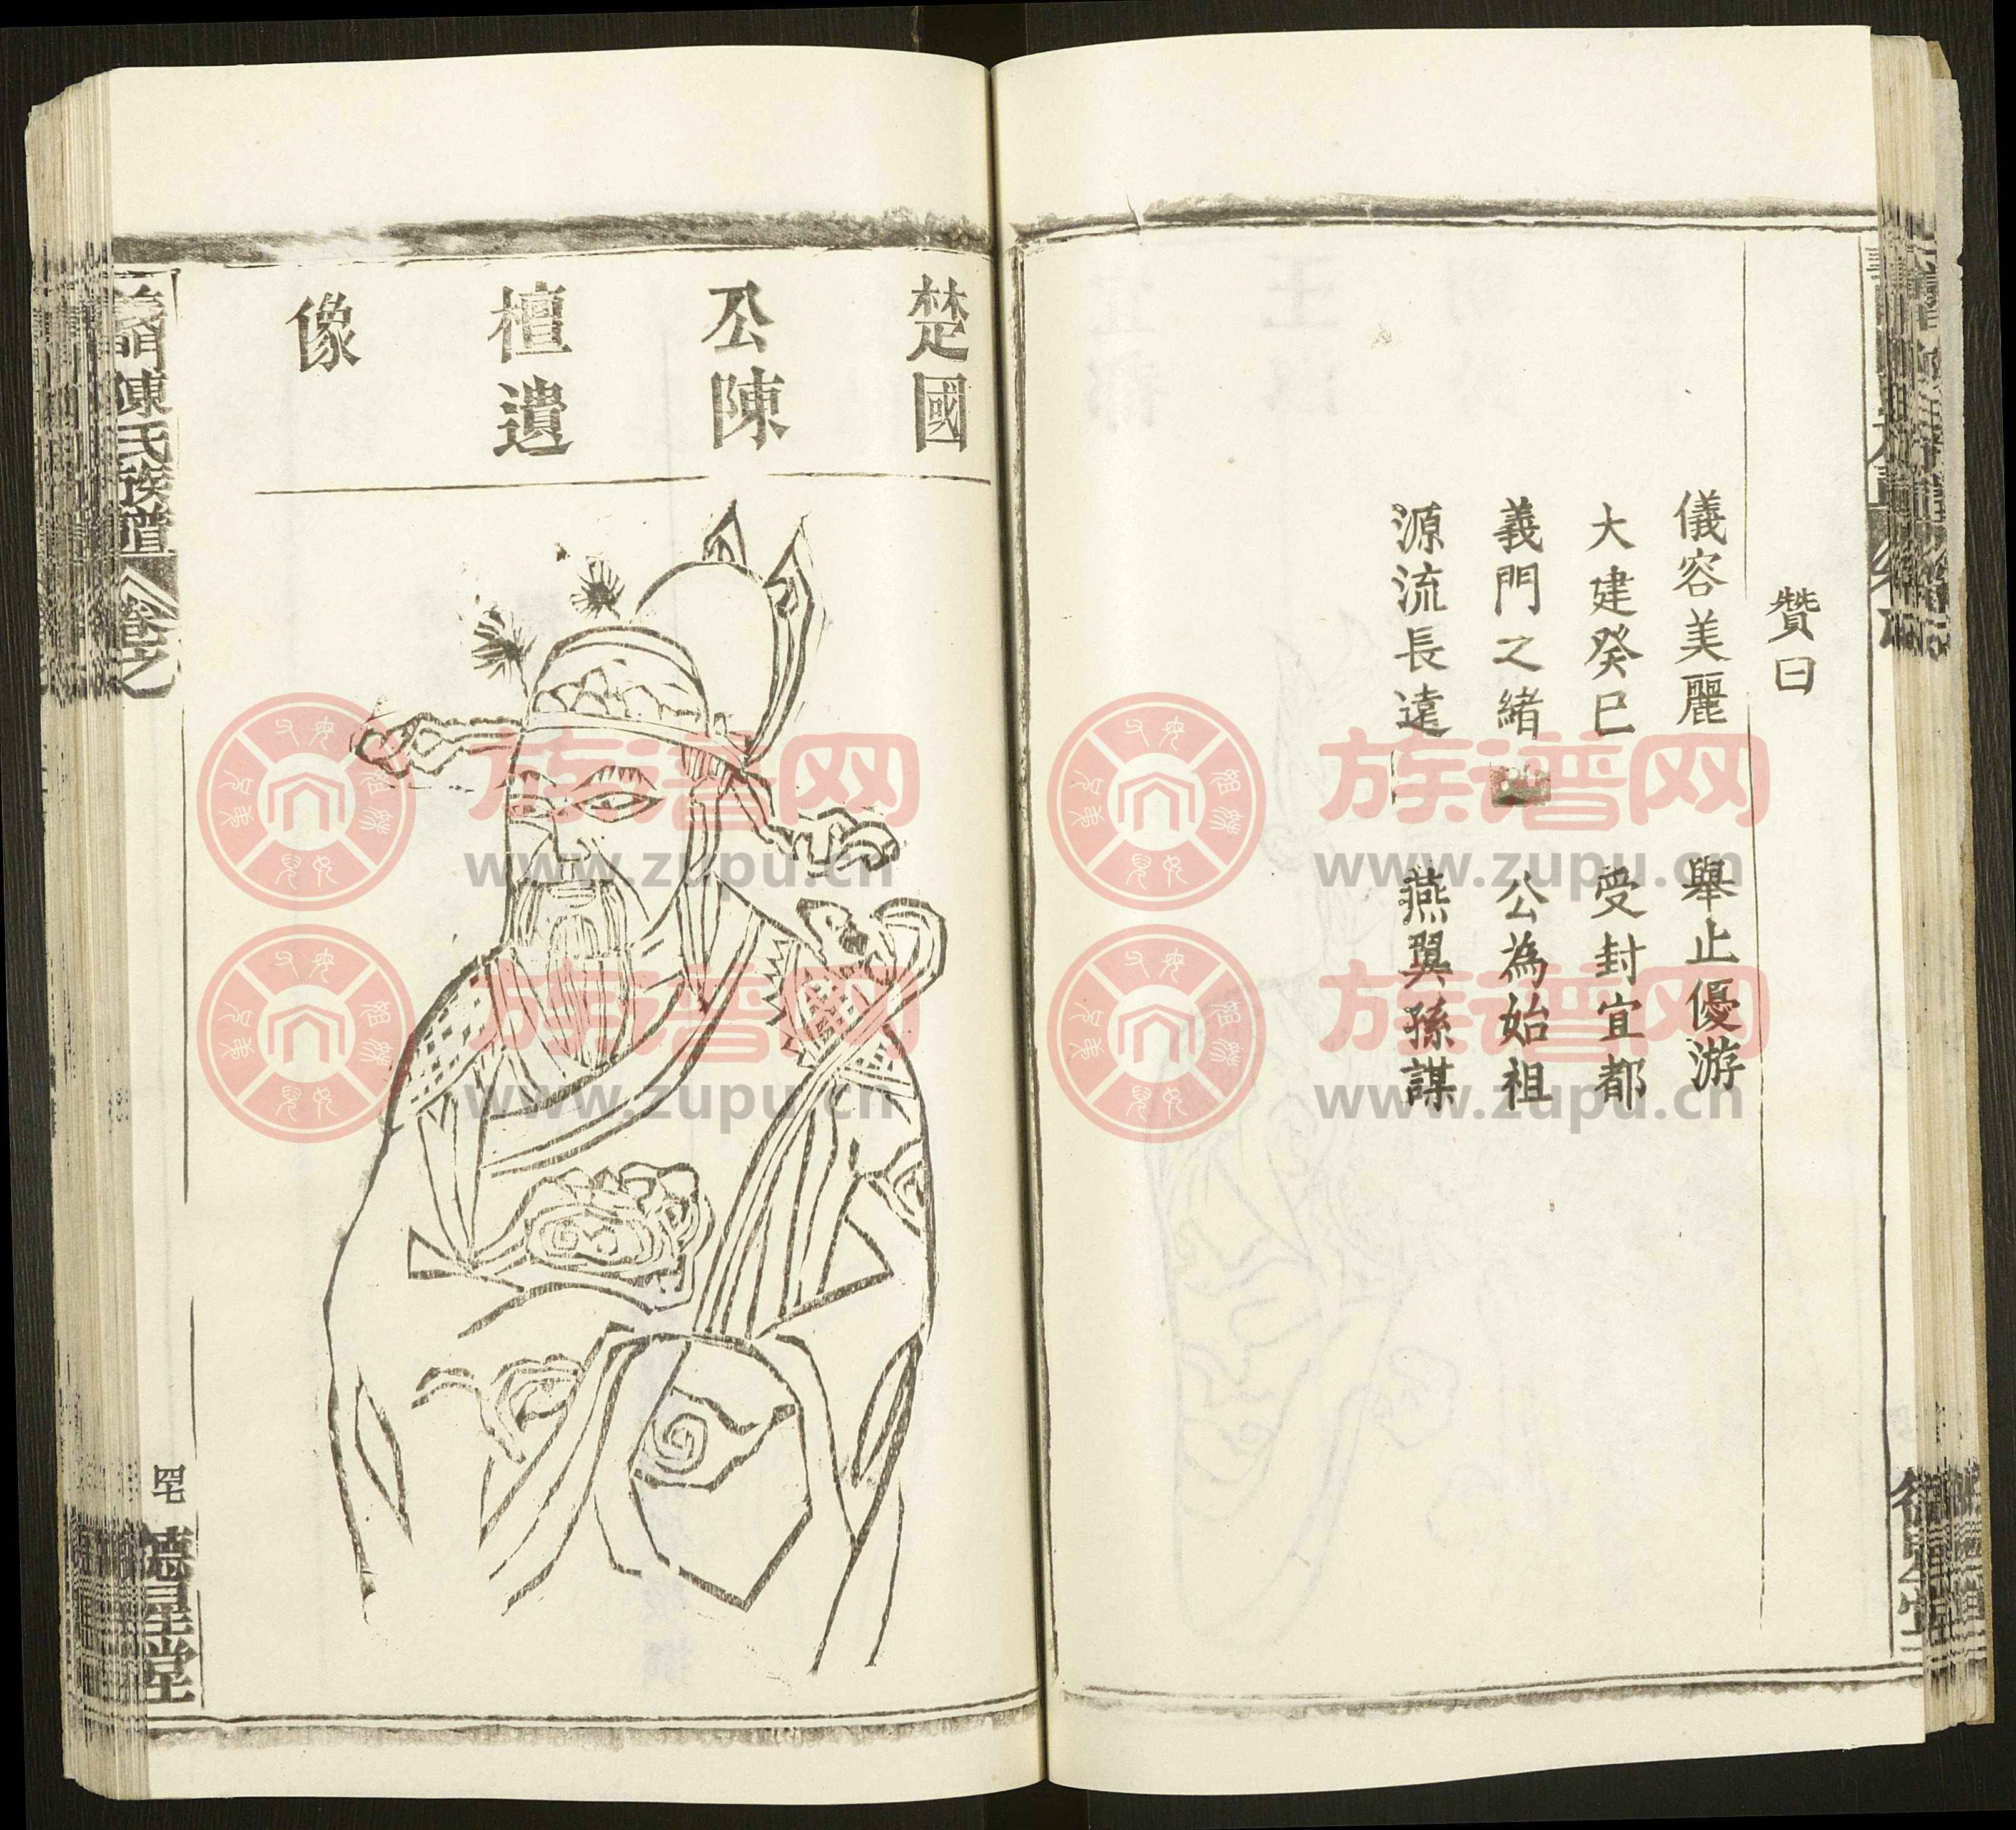 贊曰
儀容美麗 舉止優游
大建癸巳 受封宜都
義門之緒 公為始祖
源流長遠 燕翼孫謀
楚國
公陳
檀遺
像
義門陳氏族譜 卷之
德星堂
族谱网
www.zupu.cn
族谱网
www.zupu.cn
族谱网
www.zupu.cn
族谱网
www.zupu.cn